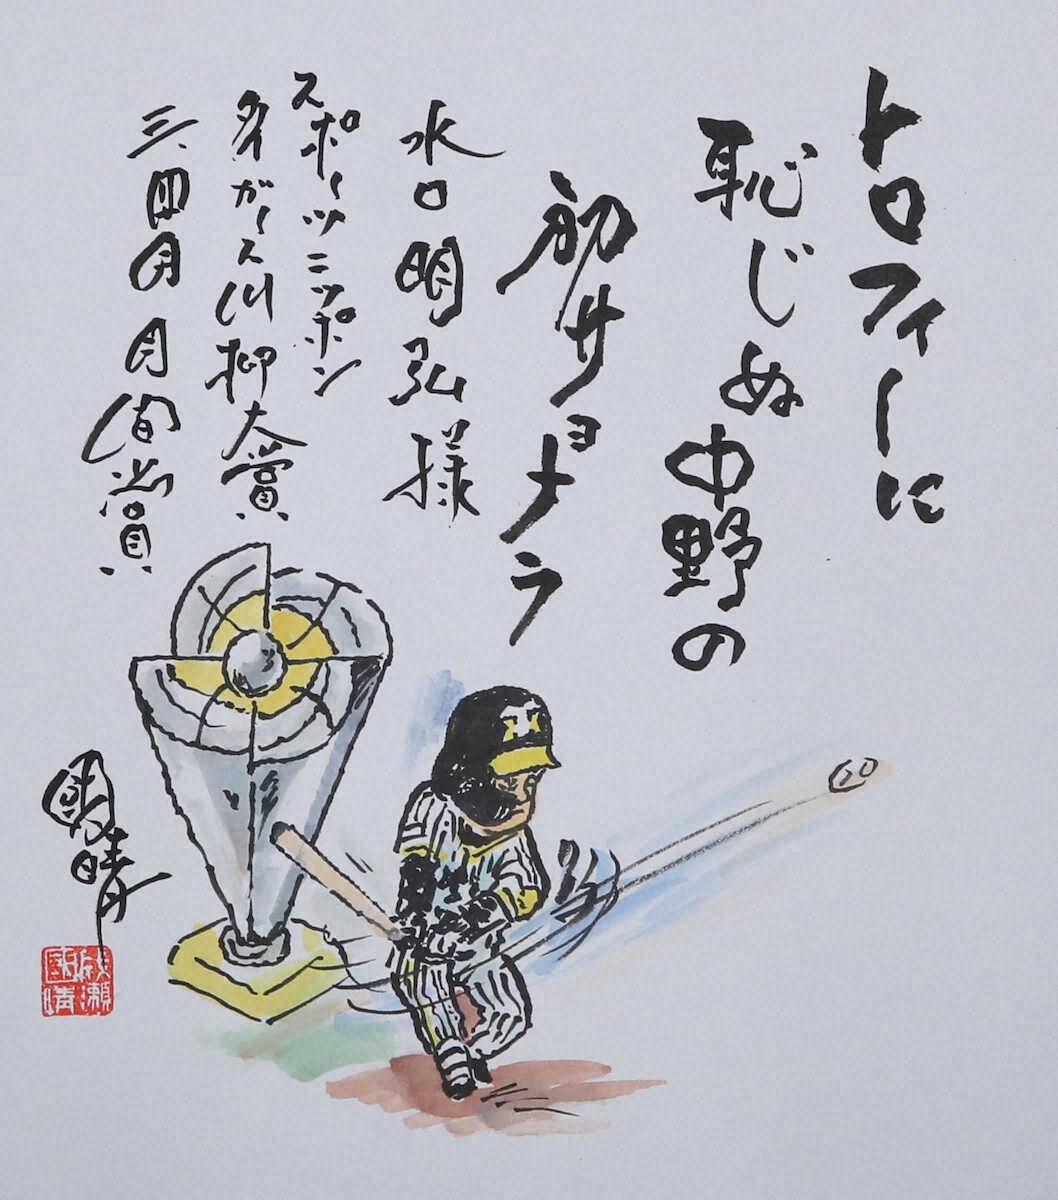 トロフィーに
恥じぬ中野の
初サヨナラ
水口明弘様
スポーツニッポン
タイガース川柳大賞
三、四月 月間賞
國晴
成瀬
國晴